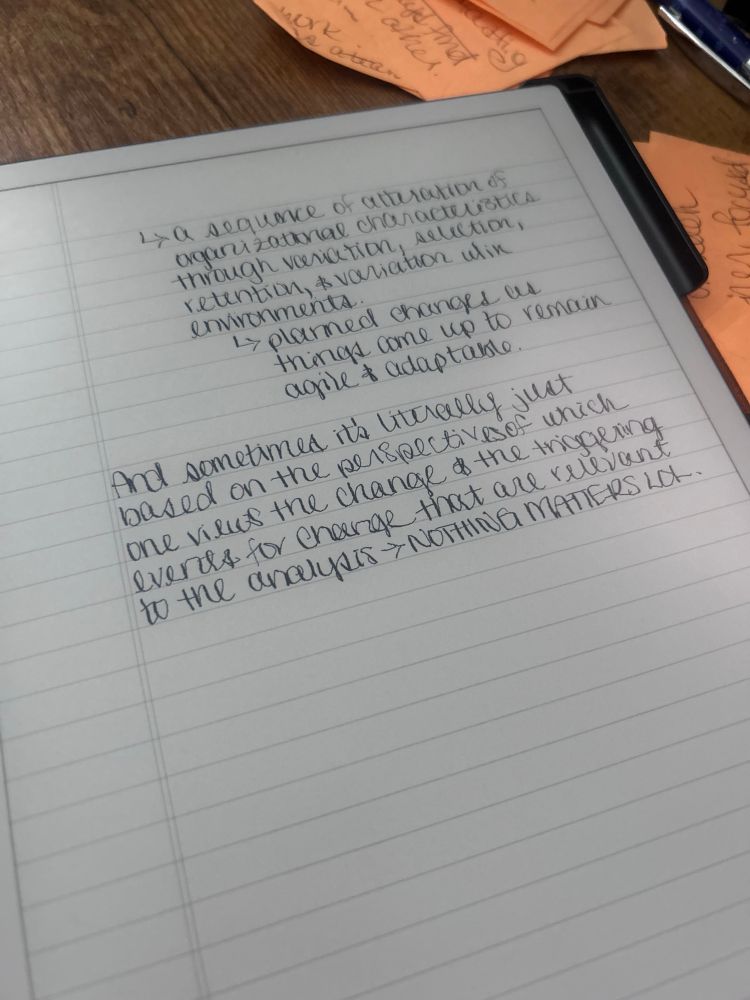 work
find
↳ a sequence of alteration of
organizational characteristics
through variation, selection,
retention, & variation w/in
environments.
↳ planned changes as
things come up to remain
agile & adaptable.
And sometimes it's literally just
based on the perspectives of which
one views the change & the triggering
events for change that are relevant
to the analysis → NOTHING MATTERS LOL.